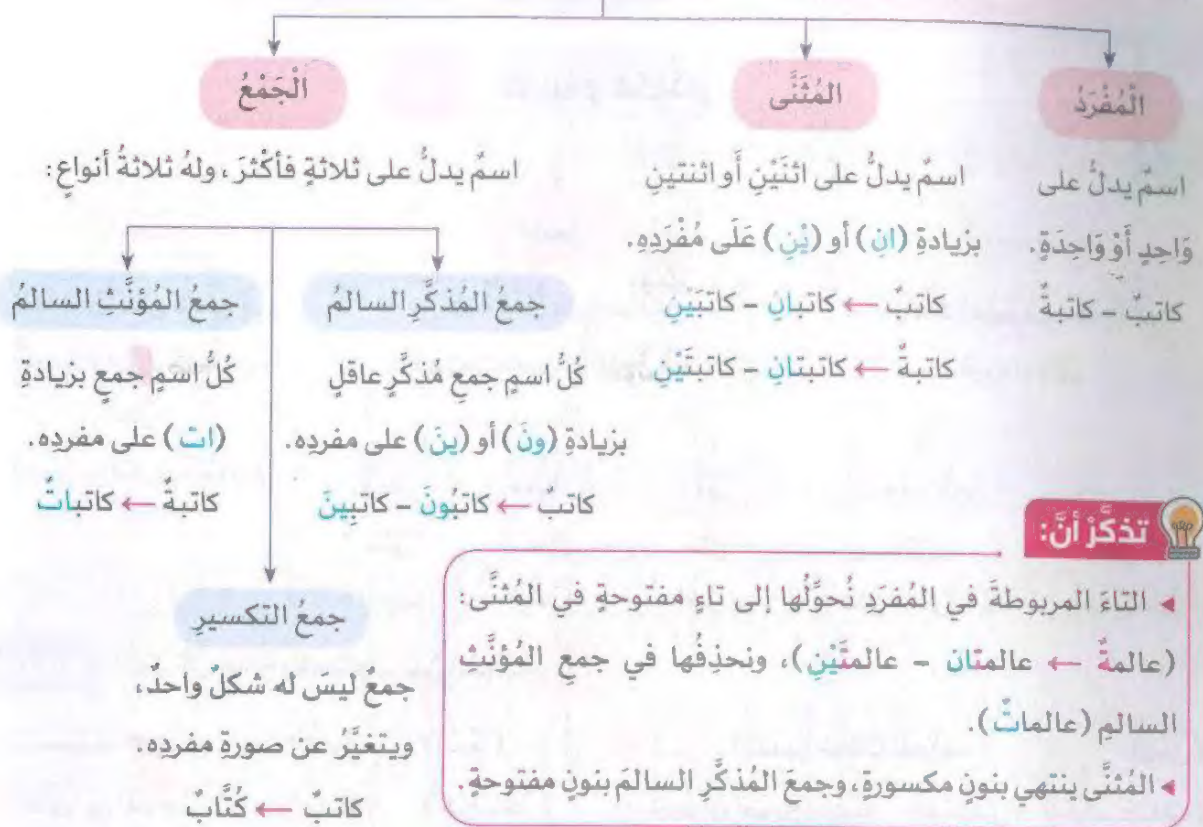 الْمُفْرَدُ
اسمٌ يدلُّ على
وَاحِدٍ أَوْ وَاحِدَةٍ.
كاتبٌ – كاتبةٌ
المُثَنَّى
اسمٌ يدلُّ على اثنَيْنِ أَو اثنتينِ
بزيادةِ (انِ) أو (يْنِ) عَلَى مُفْرَدِهِ.
كاتبٌ ← كاتبانِ – كاتبَيْنِ
كاتبةٌ ← كاتبتانِ – كاتبتَيْنِ
الْجَمْعُ
اسمٌ يدلُّ على ثلاثةٍ فأكْثرَ، ولهُ ثلاثةُ أنواعٍ:
جمعُ المُذكَّرِ السالمُ
كُلُّ اسمٍ جمعِ مُذكَّرٍ عاقلٍ
بزيادةِ (ونَ) أو (ينَ) على مفردِه.
كاتبٌ ← كاتبُونَ – كاتبِينَ
جمعُ المُؤنَّثِ السالمُ
كُلُّ اسمٍ جمعٍ بزيادةِ
(ات) على مفردِه.
كاتبةٌ ← كاتباتٌ
جمعُ التكسيرِ
جمعٌ ليسَ له شكلٌ واحدٌ،
ويتغيَّرُ عن صورةِ مفردِه.
كاتبٌ ← كُتَّابٌ
تذكَّرْ أنَّ:
◂ التاءَ المربوطةَ في المُفرَدِ نُحوِّلُها إلى تاءٍ مفتوحةٍ في المُثنَّى:
(عالمةٌ ← عالمتان – عالمتَيْنِ)، ونحذِفُها في جمعِ المُؤنَّثِ
السالمِ (عالماتٌ).
◂ المُثنَّى ينتهي بنونٍ مكسورةٍ، وجمعَ المُذكَّرِ السالمَ بنونٍ مفتوحةٍ.